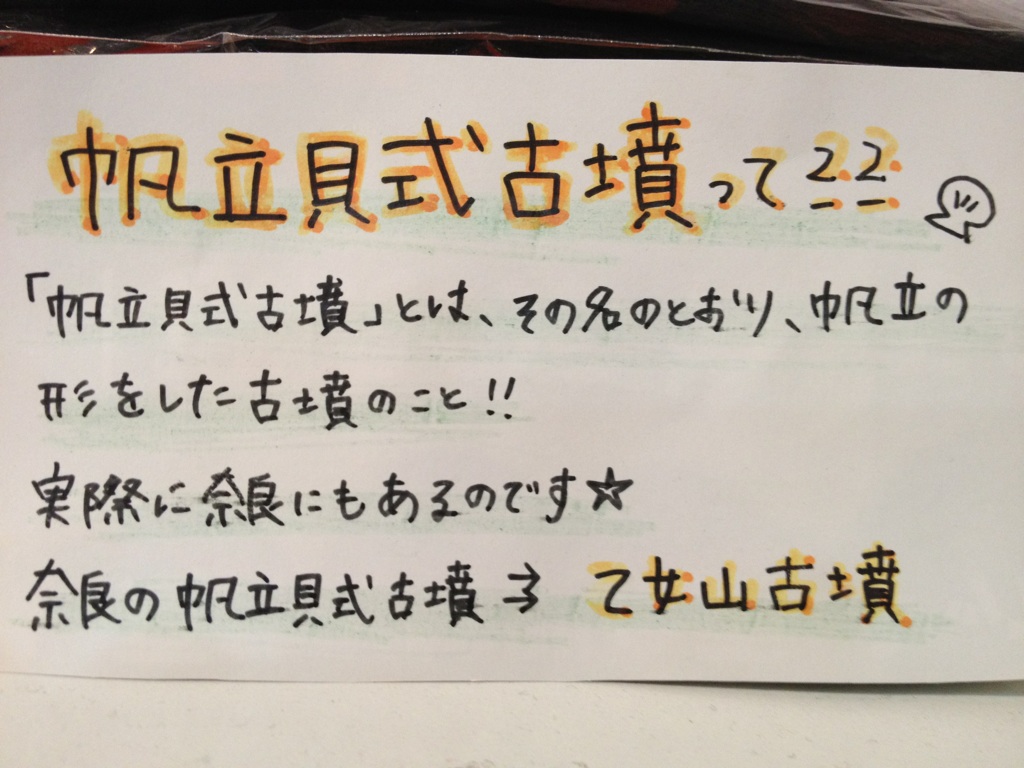 帆立貝式古墳って??
「帆立貝式古墳」とは、その名のとおり、帆立の
形をした古墳のこと!!
実際に奈良にもあるのです☆
奈良の帆立貝式古墳→乙女山古墳